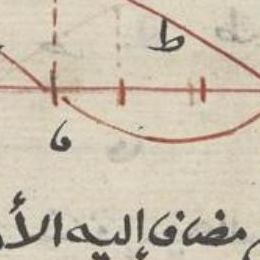 ط
مضاف إليه الأ